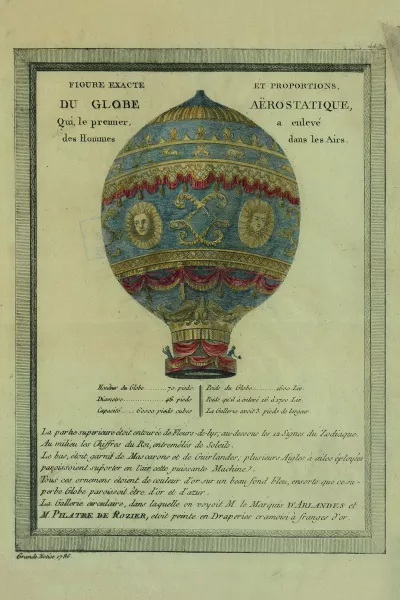 FIGURE EXACTE ET PROPORTIONS,
DU GLOBE AËROSTATIQUE,
Qui, le premier, a enlevé
des Hommes dans les Airs.
Hauteur du Globe 70 pieds
Diametre 46 pieds
Capacité 60000 pieds cubes
Poids du Globe 1600 Liv.
Poids qu'il a enlevé 16 à 1700 Liv.
La Gallerie avoit 3 pieds de largeur
La partie superieure étoit entourée de Fleurs-de-lys, au-dessous les 12 Signes du Zodiaque.
Au milieu les Chiffres du Roi, entremêlés de Soleils.
Le bas, étoit garnit de Mascarons et de Guirlandes, plusieurs Aigles à ailes éployées
paroissoient suporter en l'air, cette puissante Machine.
Tous ces ornemens étoient de couleur d'or sur un beau fond bleu, ensorte que ce su-
perbe Globe paroissoit être d'or et d'azur.
La Gallerie circulaire, dans laquelle on voyoit M. le Marquis D'ARLANDES et
M. PILATRE DE ROZIER, étoit peinte en Draperies cramoisi à franges d'or.
Grande Notice 1786.